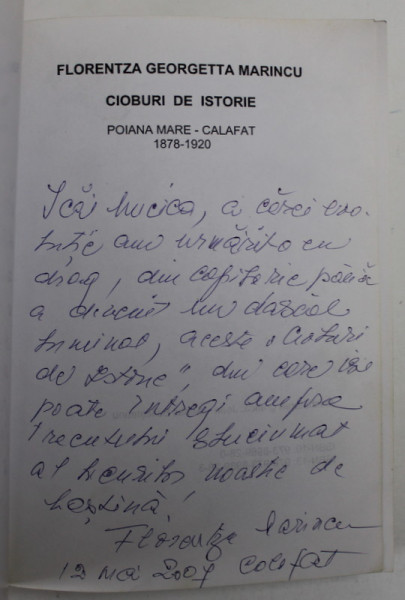 FLORENTZA GEORGETTA MARINCU
CIOBURI DE ISTORIE
POIANA MARE - CALAFAT
1878-1920
a cărei evo-
luție am urmărit-o cu
drag, din copilărie până
a devenit un dascăl
luminat, aceste "Cioburi
de Istorie", din care își
poate întregi amfora
trecutului zbuciumat
al locurilor noastre de
baștină!
Florentza Marincu
12 mai 2007 Calafat